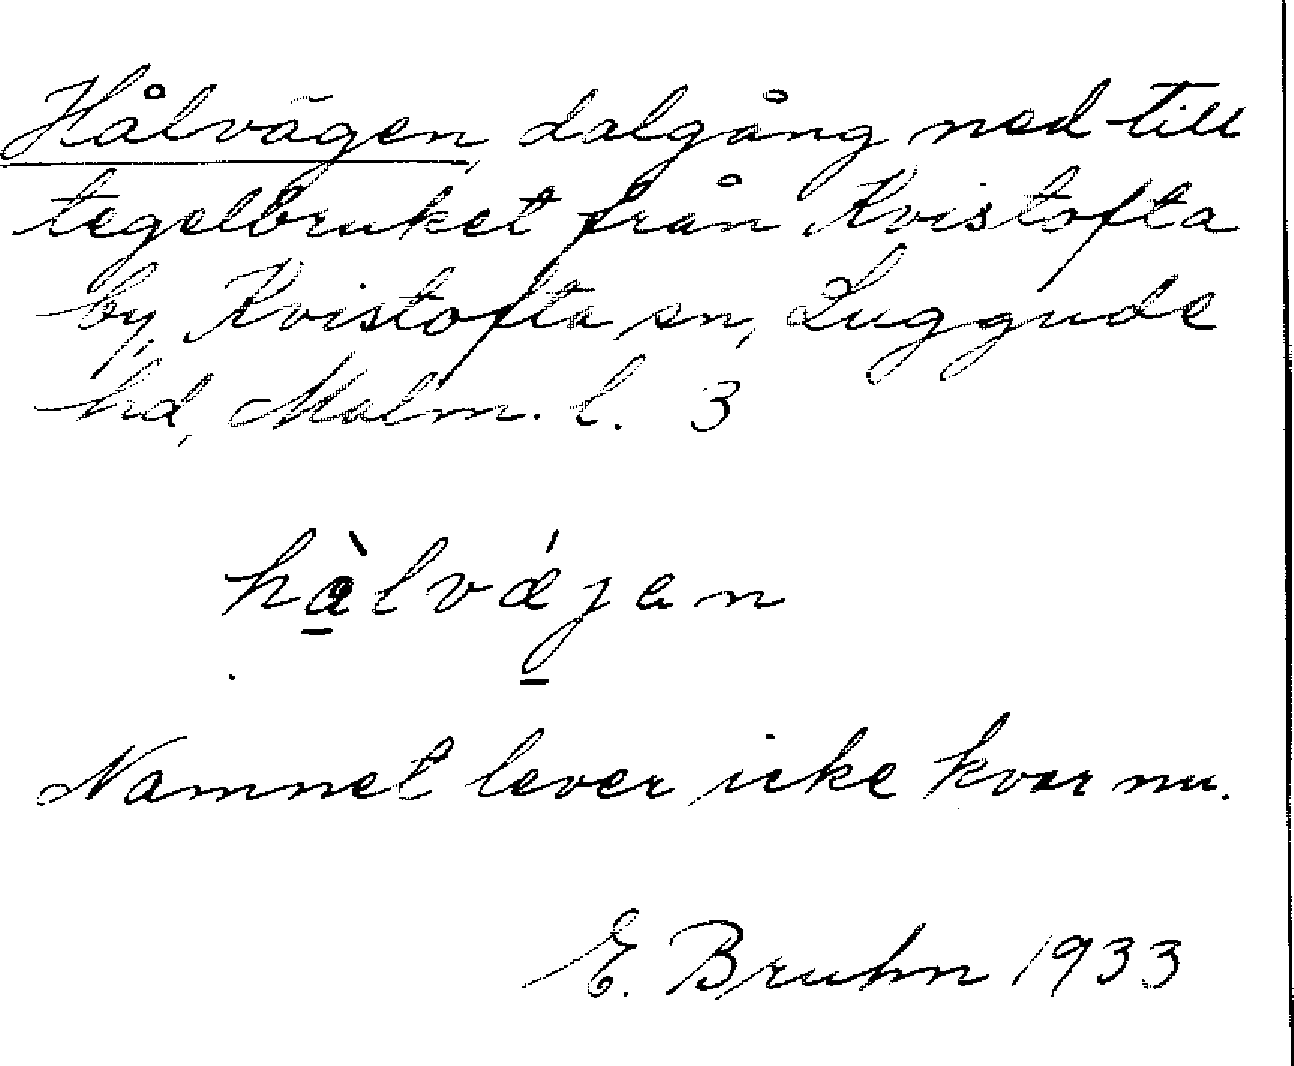 Hålvägen, dalgång ned till
tegelbruket från Kvistofta
by, Kvistofta sn, Luggude
hd, Malm. l. 3
hàlvǽjen
Namnet lever icke kvar nu.
E. Bruhn 1933